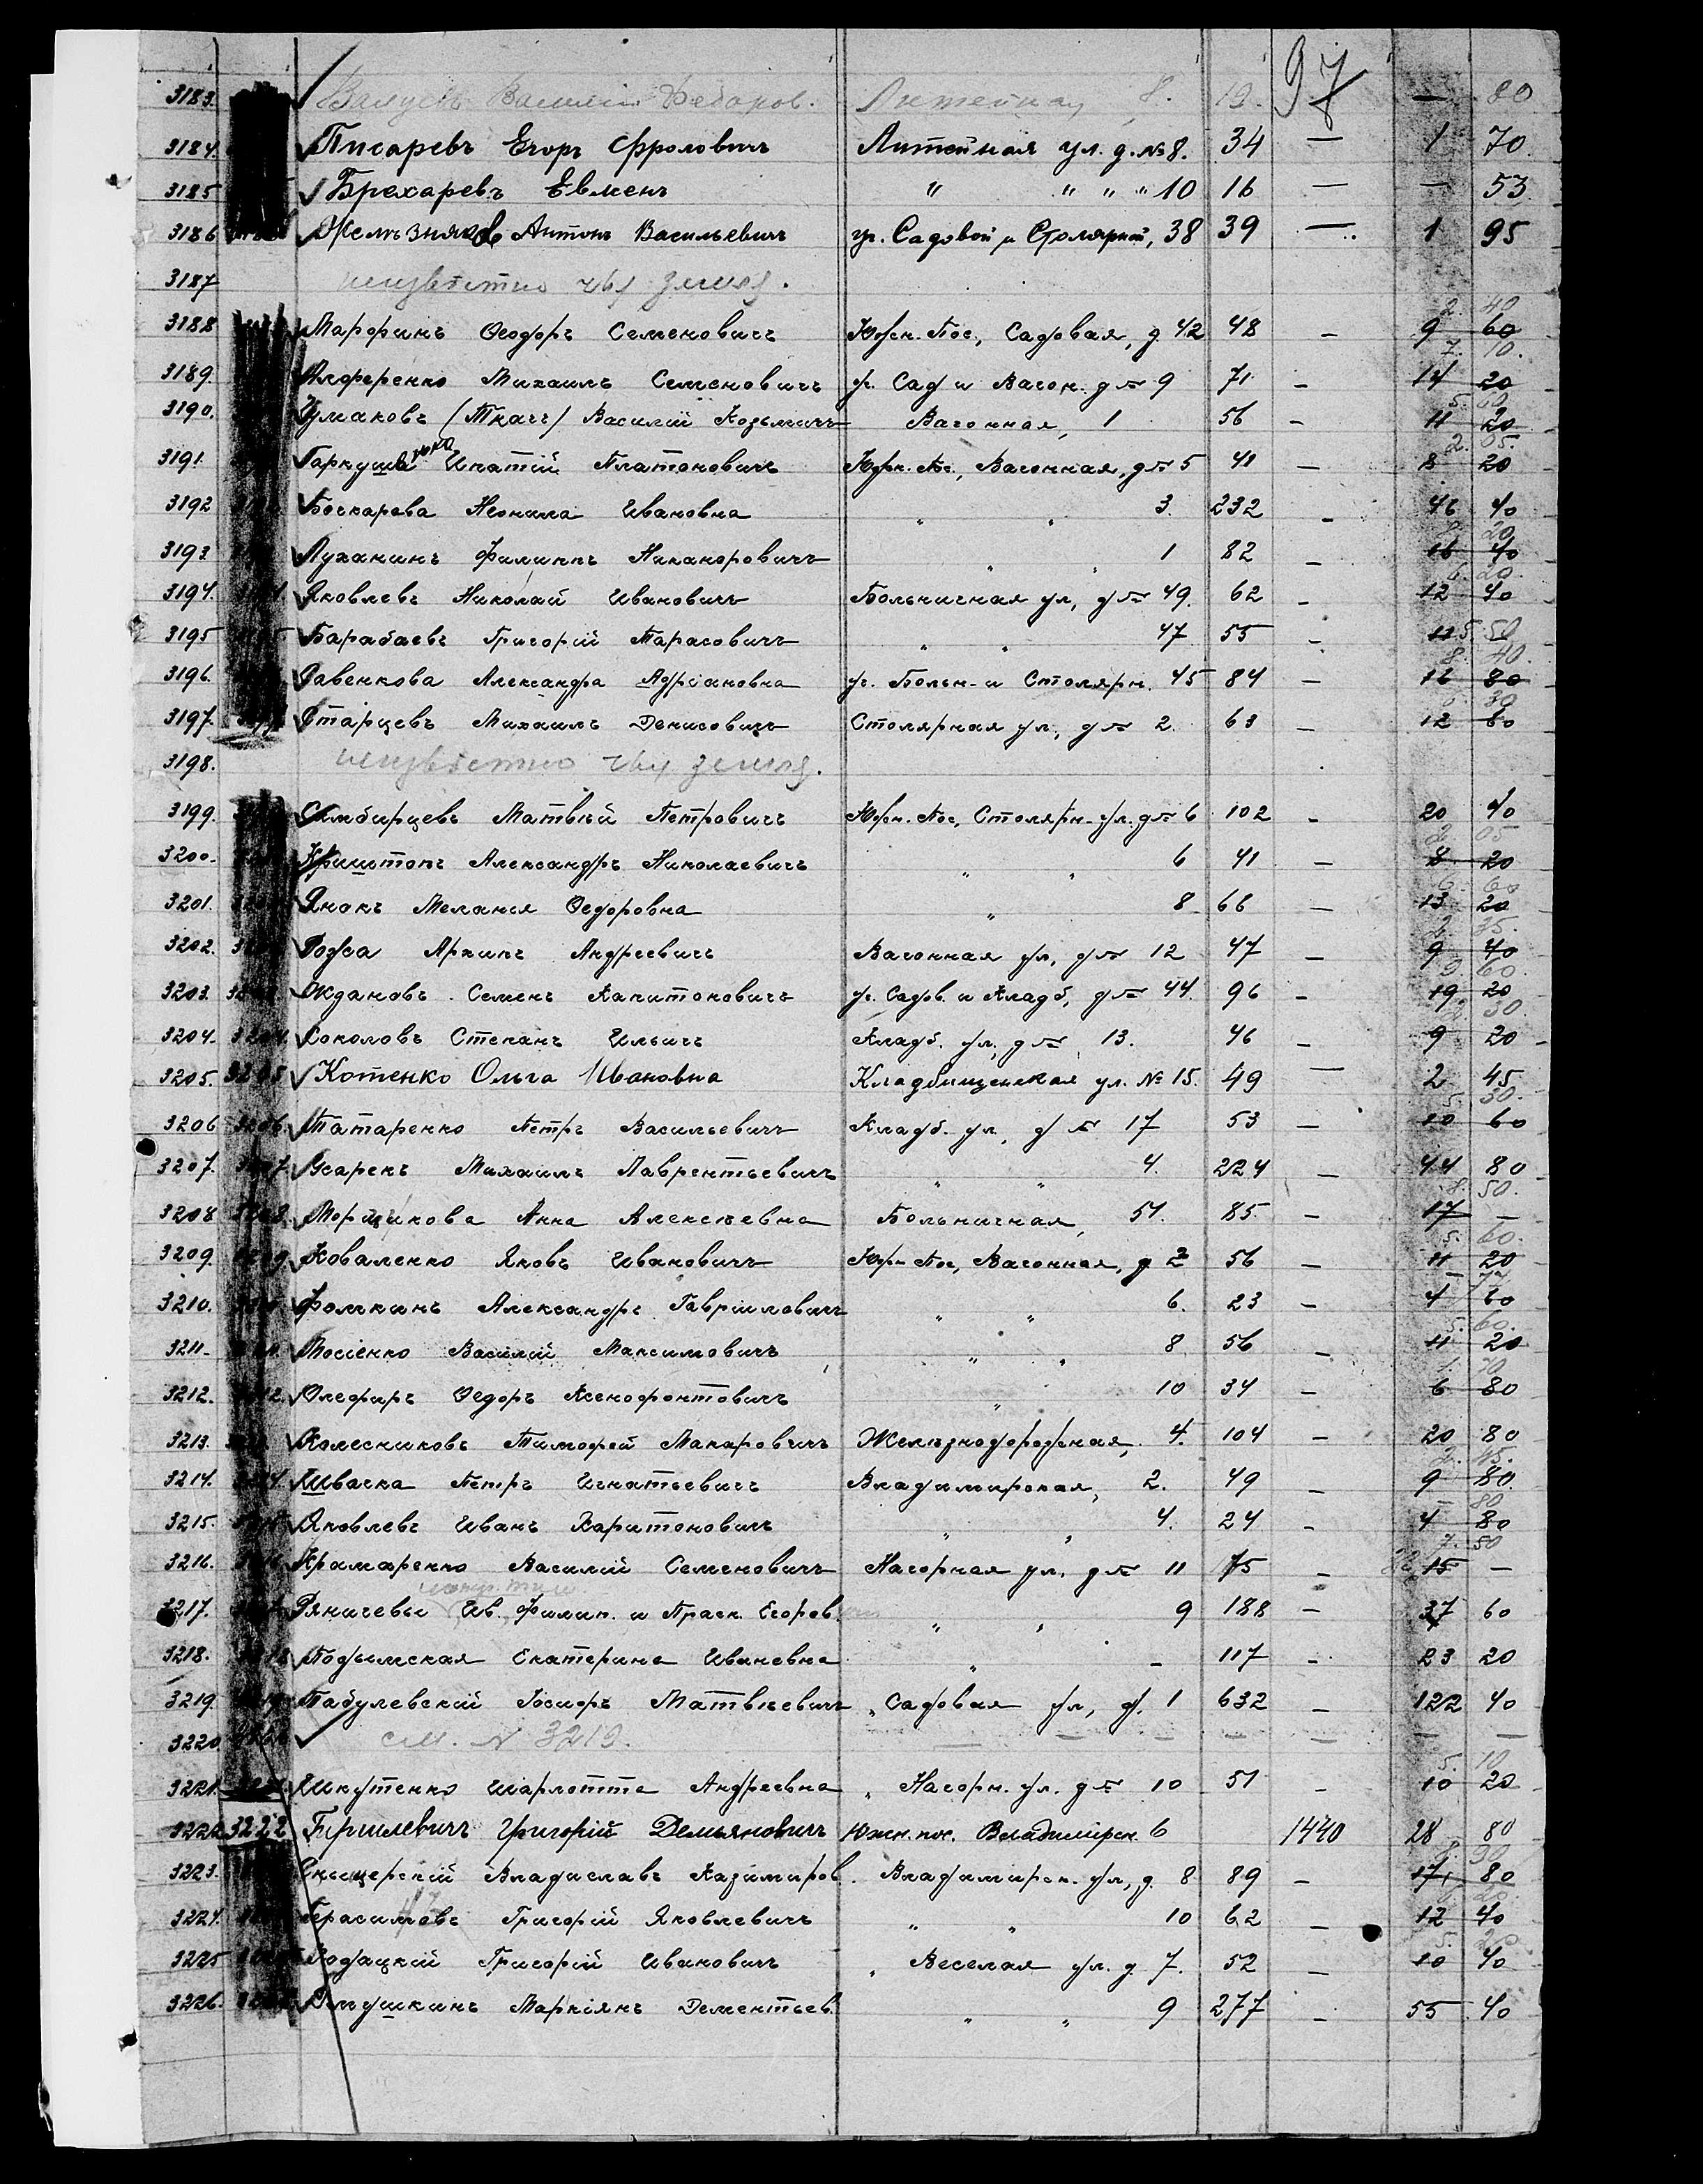 97
3183. Василій Федоров. Литейная 8. 19. — 80
3184. Писаревъ Егоръ Фроловичъ Литейная ул. д. № 8. 34 — 1 70
3185 Брехаревъ Евменъ " " " " 10 16 — — 53
3186 Желѣзняковъ Антонъ Васильевичъ уг. Садовой и Столярной, 38 39 — 1 95
3187 неизвѣстно чья земля.
2. 40
3188 Марфинъ Ѳеодоръ Семеновичъ Южн. Пос., Садовая, д. 42 48 — 9 60
7. 10.
3189. Алференко Михаилъ Семеновичъ уг. Сад и Вагон. д № 9 71 — 14 20
5. 60
3190. Чумаковъ (Ткачъ) Василій Козьмичъ Вагонная, 1 56 — 11 20
2. 05.
3191. Гаркушенко Игнатій Платоновичъ Южн. Пос., Вагонная, д № 5 41 — 8 20
3192 Боскарева Неонила Ивановна " " 3. 232 — 46 40
8. 20
3193 Луханинъ Филиппъ Никаноровичъ " " 1 82 — 16 40
6. 20.
3194. Яковлевъ Николай Ивановичъ Больничная ул, д № 49. 62 — 12 40
3195 Барабаевъ Григорій Тарасовичъ " " 47 55 — 11 5. 50
8. 40.
3196. Савенкова Александра Адріановна уг. Больн. и Столярн. 45 84 — 16 80
6. 30
3197. Старцевъ Михаилъ Денисовичъ Столярная ул., д № 2. 63 — 12 60
3198. неизвѣстно чья земля.
3199. Симбирцевъ Матвѣй Петровичъ Южн. Пос, Столярн. ул. д № 6 102 — 20 40
2. 05
3200. Криштопъ Александръ Николаевичъ " " 6 41 — 8 20
6. 60
3201. Янокъ Меланья Ѳедоровна " 8 66 — 13 20
2. 35.
3202. Рожа Архипъ Андреевичъ Вагонная ул, д № 12 47 — 9 40
9. 60.
3203. Ждановъ Семенъ Капитоновичъ уг. Садов. и Кладб, д № 44. 96 — 19 20
2. 30.
3204. 3204. Хохоловъ Степанъ Ильичъ Кладб. ул, д № 13. 46 — 9 20
3205. 3205 Котенко Ольга Ивановна Кладбищенская ул. № 15. 49 — 2 45
5. 30.
3206 3206. Татаренко Петръ Васильевичъ Кладб. ул, д № 17 53 — 10 60
3207. Писаренъ Михаилъ Лаврентьевичъ " " 4. 224 — 44 80
8. 50.
3208 3208. Морщикова Анна Алексѣевна Больничная, 51. 85 — 17 —
5. 60.
3209. Коваленко Яковъ Ивановичъ Южн Пос, Вагонная, д 2 56 — 11 20
— 77
3210. Фомкинъ Александръ Гавриловичъ " " 6. 23 — 4 60
5. 60.
3211. Мосіенко Василій Максимовичъ " " 8 56 — 11 20
1. 70
3212. Олефиръ Ѳедоръ Ксенофонтовичъ " 10 34 — 6 80
3213. Колесниковъ Тимофей Макаровичъ Желѣзнодорожная, 4. 104 — 20 80
2. 45.
3214. Швачка Петръ Игнатьевичъ Владимирская, 2. 49 — 9 80
— 80
3215. Яковлевъ Иванъ Харитоновичъ " " 4. 24 — 4 80
7. 50
3216. Крамаренко Василій Семеновичъ Нагорная ул, д № 11 75 — 15 —
3217. Ряничевы Ив. Филип. и Праск. Егоров. " " 9 188 — 37 60
3218. Подымская Екатерина Ивановна " — 117 — 23 20
3219. Табулевскій Іосифъ Матвѣевичъ " Садовая ул, д. 1 632 — 122 40
3220 см. N 3219. — — — — — — —
5. 10
3221. Шкутенко Шарлотта Андреевна " Нагорн. ул. д № 10 51 — 10 20
3222 3222 Гиршевичъ Григорій Демьяновичъ Южн. пос. Владимирск. 6 1440 28 80
8. 90
3223. Владиславъ Казиміров. Владимирск. ул, д. 8 89 — 17 80
6. 20.
3224. Герасимовъ Григорій Яковлевичъ " " 10 62 — 12 40
5. 20
3225 Лодацкій Григорій Ивановичъ " Веселая ул. д. 7. 52 — 10 40
3226. Маркіянъ Дементьев. " " 9 277 — 55 40